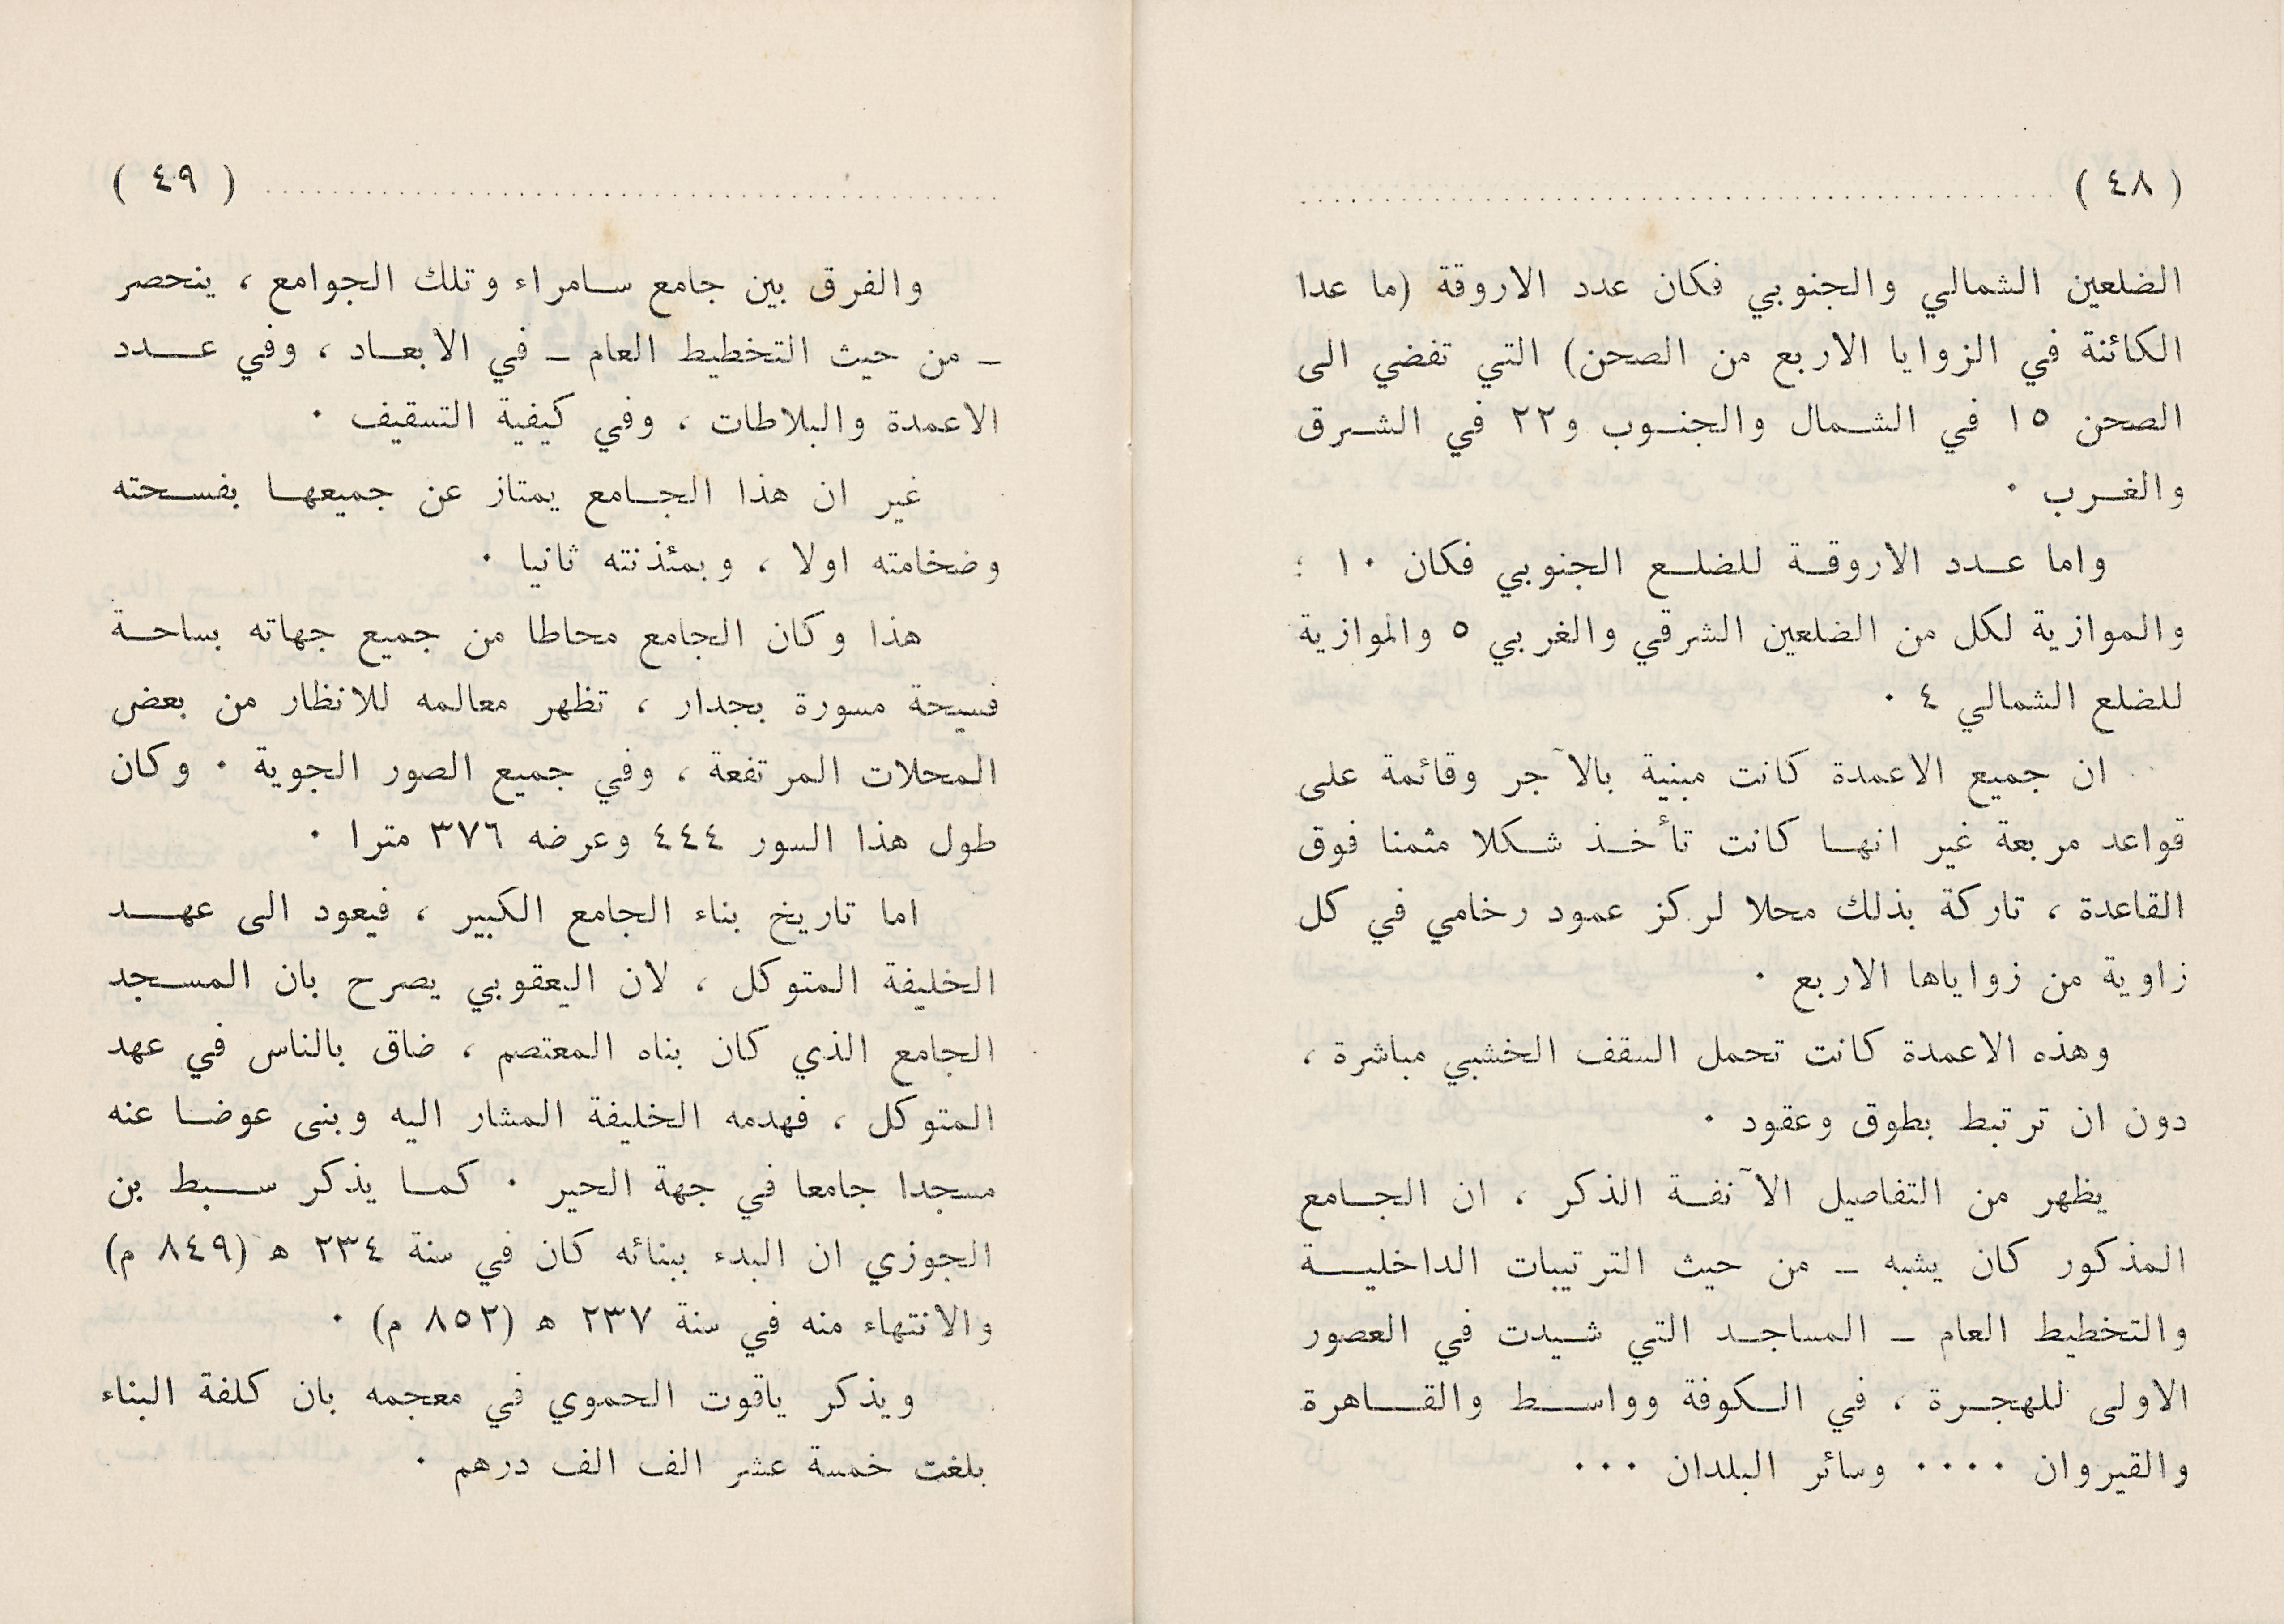 ( ٤٨ )
الضلعين الشمالي والجنوبي فكان عدد الاروقة (ما عدا
الكائنة في الزوايا الاربع من الصحن) التي تفضي الى
الصحن ١٥ في الشمال والجنوب و٢٢ في الشرق
والغرب ٠
واما عدد الاروقة للضلع الجنوبي فكان ١٠ ؛
والموازية لكل من الضلعين الشرقي والغربي ٥ والموازية
للضلع الشمالي ٤ ٠
ان جميع الاعمدة كانت مبنية بالآجر وقائمة على
قواعد مربعة غير انها كانت تأخذ شكلا مثمنا فوق
القاعدة ، تاركة بذلك محلا لركز عمود رخامي في كل
زاوية من زواياها الاربع ٠
وهذه الاعمدة كانت تحمل السقف الخشبي مباشرة ،
دون ان ترتبط بطوق وعقود ٠
يظهر من التفاصيل الآنفة الذكر ، ان الجامع
المذكور كان يشبه ــ من حيث الترتيبات الداخلية
والتخطيط العام ــ المساجد التي شيدت في العصور
الاولى للهجرة ، في الكوفة وواسط والقاهرة
والقيروان ٠٠٠٠ وسائر البلدان ٠٠٠
( ٤٩ )
والفرق بين جامع سامراء وتلك الجوامع ، ينحصر
ــ من حيث التخطيط العام ــ في الابعاد ، وفي عدد
الاعمدة والبلاطات ، وفي كيفية التسقيف ٠
غير ان هذا الجامع يمتاز عن جميعها بفسحته
وضخامته اولا ، وبمئذنته ثانيا ٠
هذا وكان الجامع محاطا من جميع جهاته بساحة
فسيحة مسورة بجدار ، تظهر معالمه للانظار من بعض
المحلات المرتفعة ، وفي جميع الصور الجوية ٠ وكان
طول هذا السور ٤٤٤ وعرضه ٣٧٦ مترا ٠
اما تاريخ بناء الجامع الكبير ، فيعود الى عهد
الخليفة المتوكل ، لان اليعقوبي يصرح بان المسجد
الجامع الذي كان بناه المعتصم ، ضاق بالناس في عهد
المتوكل ، فهدمه الخليفة المشار اليه وبنى عوضا عنه
مسجدا جامعا في جهة الحير ٠ كما يذكر سبط بن
الجوزي ان البدء ببنائه كان في سنة ٢٣٤ ه (٨٤٩ م)
والانتهاء منه في سنة ٢٣٧ ه (٨٥٢ م) ٠
ويذكر ياقوت الحموي في معجمه بان كلفة البناء
بلغت خمسة عشر الف الف درهم ٠